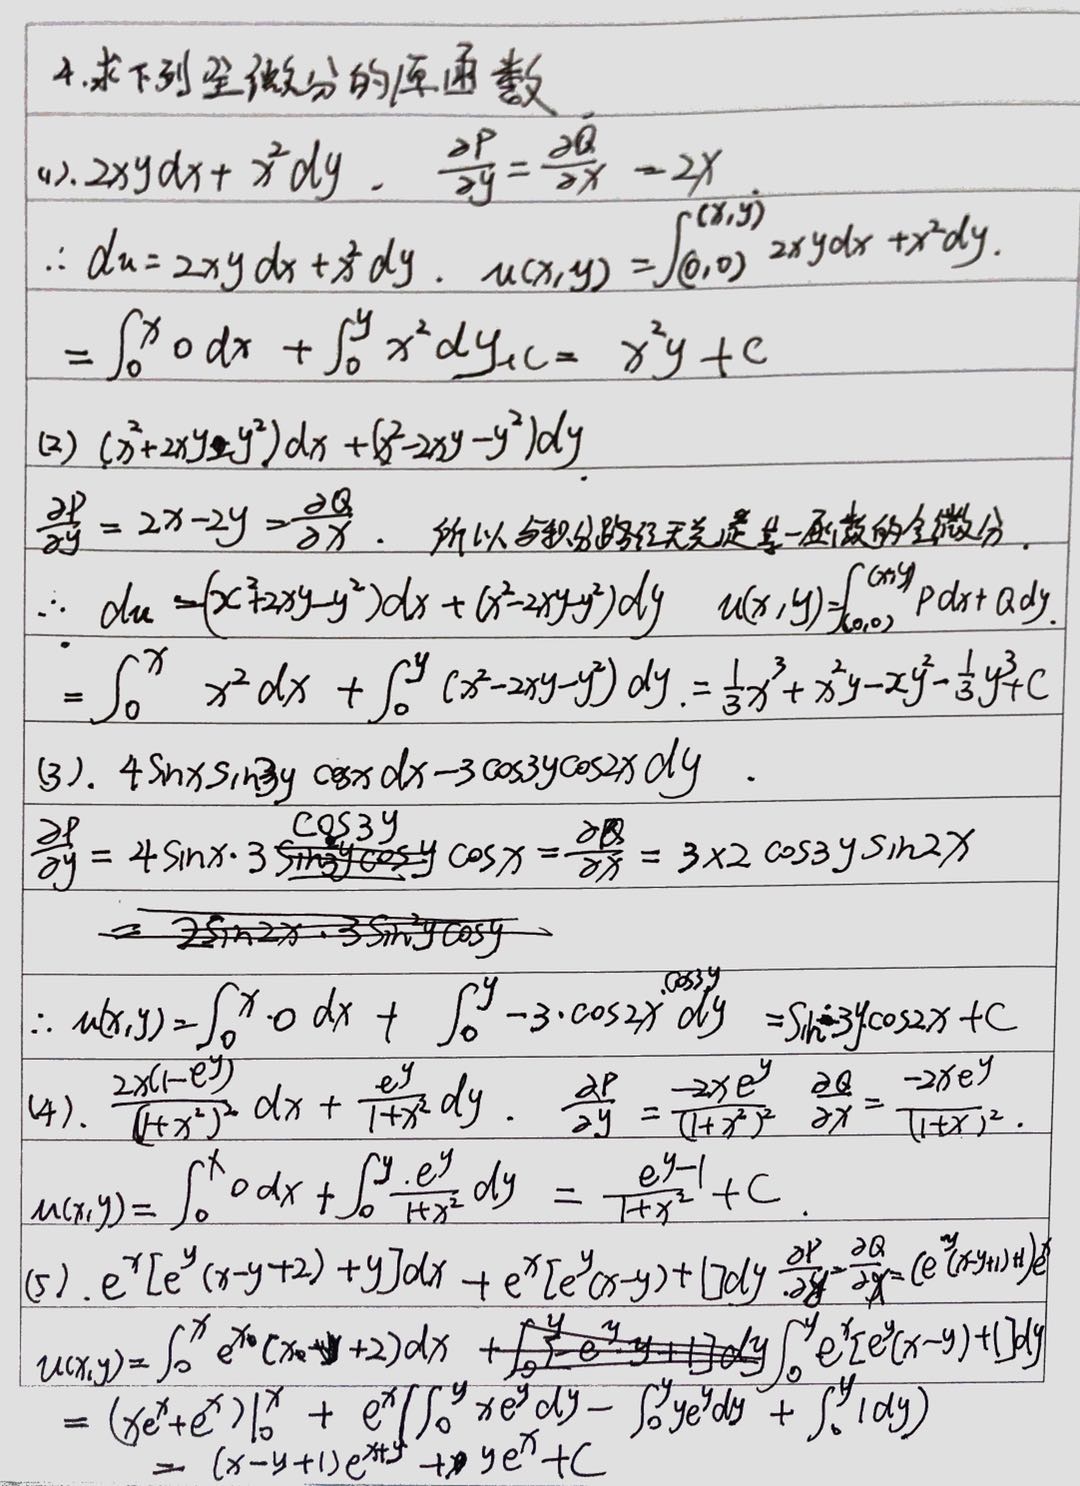 4.求下列全微分的原函数
(1). 2xydx + x²dy . ∂P/∂y = ∂Q/∂x = 2x
∴ du = 2xydx + x²dy . u(x,y) = ∫_(0,0)^(x,y) 2xydx + x²dy.
= ∫₀ˣ 0dx + ∫₀ʸ x²dy + C = x²y + C
(2) (x²+2xy-y²)dx + (x²-2xy-y²)dy.
∂P/∂y = 2x-2y = ∂Q/∂x . 所以与积分路径无关是某一函数的全微分.
∴ du = (x²+2xy-y²)dx + (x²-2xy-y²)dy u(x,y) = ∫_(0,0)^(x,y) Pdx + Qdy.
= ∫₀ˣ x²dx + ∫₀ʸ (x²-2xy-y²)dy. = 1/3x³ + x²y - xy² - 1/3y³ + C
(3). 4sinxsin3y cosxdx - 3cos3ycos2xdy .
∂P/∂y = 4sinx·3cos3y cosx = ∂Q/∂x = 3×2 cos3ysin2x
∴ u(x,y) = ∫₀ˣ·0 dx + ∫₀ʸ -3·cos2x·cos3y dy = Sin-3y·cos2x + C
(4). 2x(1-eʸ)/(1+x²)² dx + eʸ/1+x² dy . ∂P/∂y = -2xeʸ/(1+x²)² ∂Q/∂x = -2xeʸ/(1+x)² .
u(x,y) = ∫₀ˣ 0dx + ∫₀ʸ ·eʸ/1+x² dy = eʸ-1/1+x² + C .
(5). eˣ[eʸ(x-y+2)+y]dx + eˣ[eʸ(x-y)+1]dy ∂P/∂y = ∂Q/∂x = (eʸ(x-y+1)+1)eˣ
u(x,y) = ∫₀ˣ eˣ(x+2)dx + ∫₀ʸ eˣ[eʸ(x-y)+1]dy
= (xeˣ+eˣ)|₀ˣ + eˣ(∫₀ʸ xeʸdy - ∫₀ʸ yeʸdy + ∫₀ʸ 1dy)
= (x-y+1)eˣ⁺ʸ + yeˣ + C